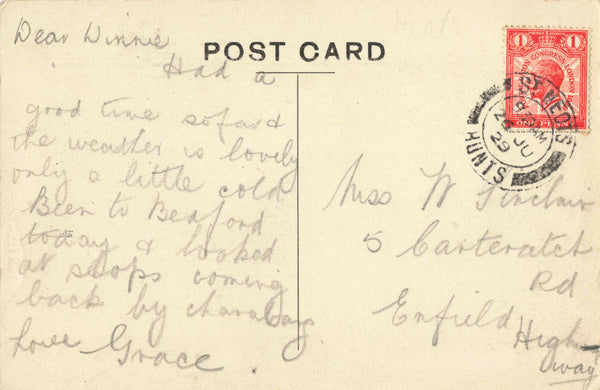 Dear Winnie
POST CARD
Had a
good time so far &
the weather is lovely
only a little cold
Been to Bedford
today & looked
at shops coming
back by charabang
Love Grace.
Miss W Sinclair
5 Carteratch
Rd
Enfield
High
way
1 1
POSTAL UNION CONGRESS LONDON
ONE PENNY
ST. NEOTS
26 JU
29
HUNTS